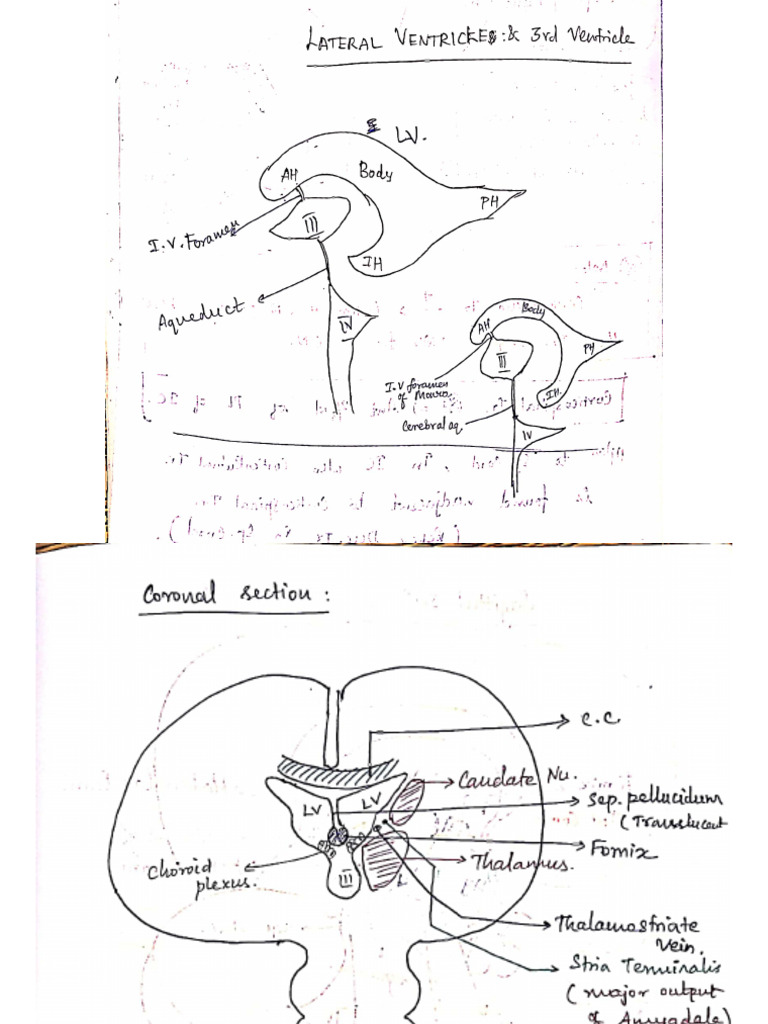 LATERAL VENTRICLES: & 3rd Ventricle
LV.
AH
Body
PH
III
I.V. Foramen
IH
Aqueduct
IV
Body
AH
PH
III
I.V foramen
of Monro.
IH
Cerebral aq.
IV
Coronal section:
C.C
Caudate Nu.
LV
LV
Sep. pellucidum
(Translucent
Fornix
Choroid
plexus.
Thalamus.
III
Thalamostriate
Vein.
Stria Terminalis
(major output
of Amygdale)